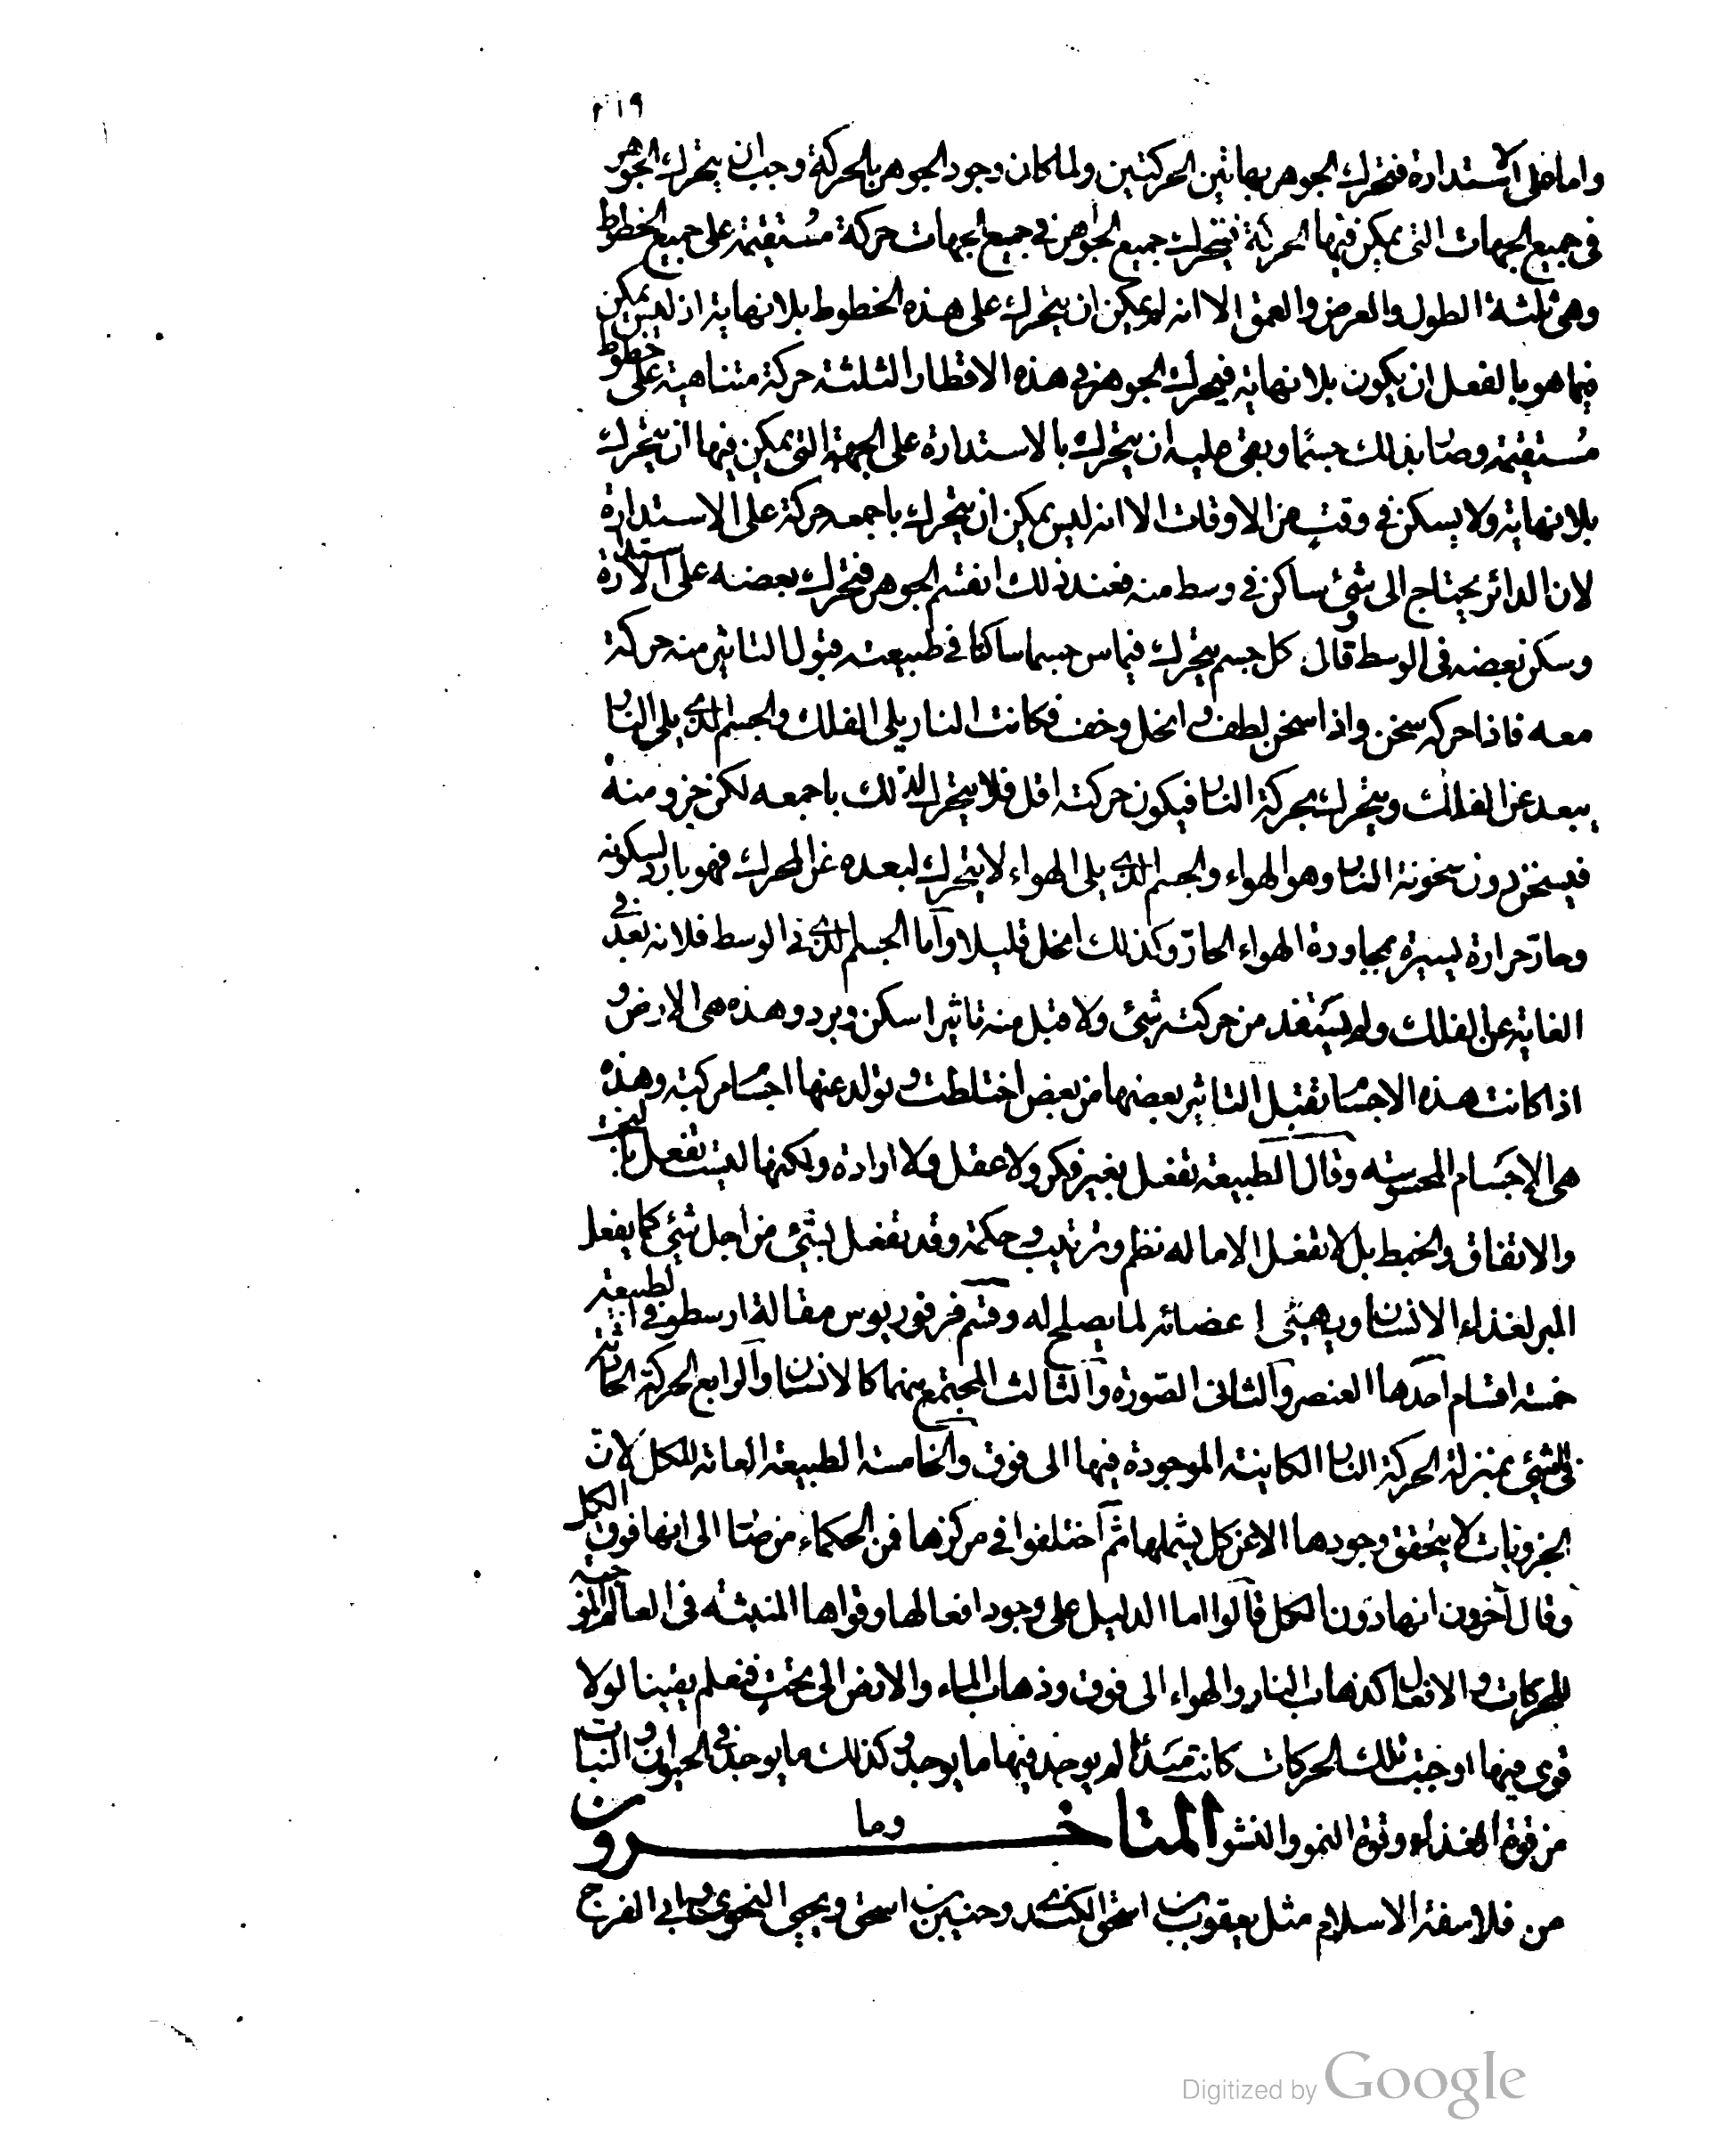 ٢١٩
واما على الاستدارة فتحرك الجوهر بهاتين الحركتين ولما كان وجود الجوهر بالحركة وجب ان يتحرك الجوهر
فى جميع الجهات التى يمكن فيها الحركة فيتحرك جميع الجواهر فى جميع الجهات حركة مستقيمة على جميع الخطوط
وهى ثلثة الطول والعرض والعمق الا انه لم يمكن ان يتحرك على هذه الخطوط بلا نهاية اذ ليس يمكن
فيما هو بالفعل ان يكون بلا نهاية فيحرك الجوهر فى هذه الاقطار الثلثة حركة متناهية على خطوط
مستقيمة وصار بذلك جسما وبقى عليه ان يتحرك بالاستدارة على الجهة التى يمكن فيها ان يتحرك
بلا نهاية ولا يسكن فى وقت من الاوقات الا انه ليس يمكن ان يتحرك باجمعه حركة على الاستدارة
لان الدائر يحتاج الى شئ ساكن فى وسط منه فعند ذلك انقسم الجوهر فتحرك بعضه على الاستدارة
وسكن بعضه فى الوسط وقال كل جسم يتحرك فيماس جسما ساكنا فى طبيعته قبول التاثير منه حركة
معه فاذا حركه سخن واذا سخن لطف وانحل وخف فكانت النار يلى الفلك والجسم الذى يلى النار
يبعد عن الفلك ويتحرك بحركة النار فيكون حركته اقل فلا يتحرك لذلك باجمعه لكن جزو منه
فيسخن دون سخونة النار وهو الهواء والجسم الذى يلى الهواء لا يتحرك لبعده عن المحرك فهو بارد لسكونه
وحار حرارة يسيرة بمجاورة الهواء الحار وكذلك انحل قليلا واما الجسم الذى فى الوسط فلانه بعد فى
الغاية عن الفلك ولم يستفد من حركته شئ ولا قبل منه تاثيرا سكن وبرد وهذه هى الارض و
اذا كانت هذه الاجسام تقبل التاثير بعضها من بعض اختلطت وتولد عنها اجسام مركبة وهذه
هى الاجسام المحسوسة وقال الطبيعة تفعل بغير فكر ولا عقل ولا ارادة ولكنها ليست تفعل بالبخت
والاتفاق والخبط بل لا تفعل الا ما له نظم وترتيب وحكمة وقد تفعل شئ من اجل شئ كما يفعل
البر لغذاء الانسان ويهيئ اعضائه لما يصلح له وقسم فرفوريوس مقالة ارسطو فى الطبيعة
خمسة اقسام احدها العنصر والثانى الصورة والثالث المجتمع منهما كالانسان والرابع الحركة الحادثة
فى الشئ بمنزلة الحركة النار الكاينة الموجودة فيها الى فوق والخامسة الطبيعة العامة للكل لان
الجزويات لا يتحقق وجودها الا عن كل يشملها ثم اختلفوا فى مركزها فمن الحكماء من صار الى انها فوق الكل
وقال آخرون انها دون الكل قالوا اما الدليل على وجود افعالها وقواها المنبثة فى العالم الموجبة
للحركات والافعال كذهاب النار والهواء الى فوق وذهاب الماء والارض الى تحت فنعلم يقينا لولا
قوى فيها اوجبت تلك الحركات كانت مبدأ لم يوجد فيها ما يوجد وكذلك ما يوجد فى الحيوان والنبات
من قوة الغذاء وقوة النمو والنشو المتاخرون وما
من فلاسفة الاسلام مثل يعقوب بن اسحق الكندى وحنين بن اسحق ويحيى النحوى وابى الفرج
Digitized by Google